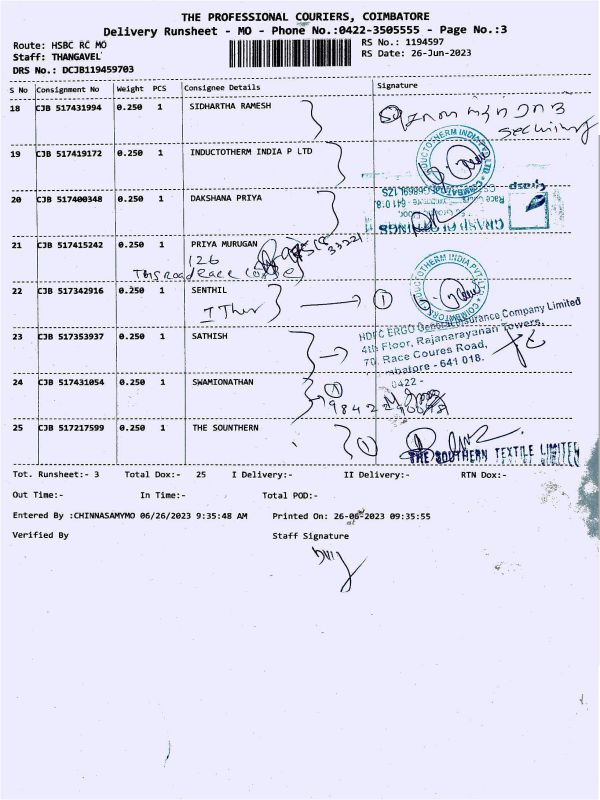 THE PROFESSIONAL COURIERS, COIMBATORE
Delivery Runsheet - MO - Phone No.:0422-3505555 - Page No.:3
Route: HSBC RC MO
RS No.: 1194597
Staff: THANGAVEL
RS Date: 26-Jun-2023
DRS No.: DCJB119459703
S No Consignment No Weight PCS Consignee Details Signature
18 CJB 517431994 0.250 1 SIDHARTHA RAMESH
19 CJB 517419172 0.250 1 INDUCTOTHERM INDIA P LTD
INDUCTOTHERM INDIA PVT LTD
COIMBATORE
20 CJB 517400348 0.250 1 DAKSHANA PRIYA
21 CJB 517415242 0.250 1 PRIYA MURUGAN
126
33221
22 CJB 517342916 0.250 1 SENTHIL
1
INDUCTOTHERM INDIA PVT LTD
COIMBATORE
23 CJB 517353937 0.250 1 SATHISH
HDFC ERGO General Insurance Company Limited
4th Floor, Rajanarayanan Towers,
70, Race Coures Road,
Coimbatore - 641 018.
0422 -
24 CJB 517431054 0.250 1 SWAMIONATHAN
25 CJB 517217599 0.250 1 THE SOUNTHERN
1
THE SOUTHERN TEXTILE LIMITED
Tot. Runsheet:- 3 Total Dox:- 25 I Delivery:- II Delivery:- RTN Dox:-
Out Time:- In Time:- Total POD:-
Entered By :CHINNASAMYMO 06/26/2023 9:35:48 AM Printed On: 26-06-2023 09:35:55
Verified By Staff Signature